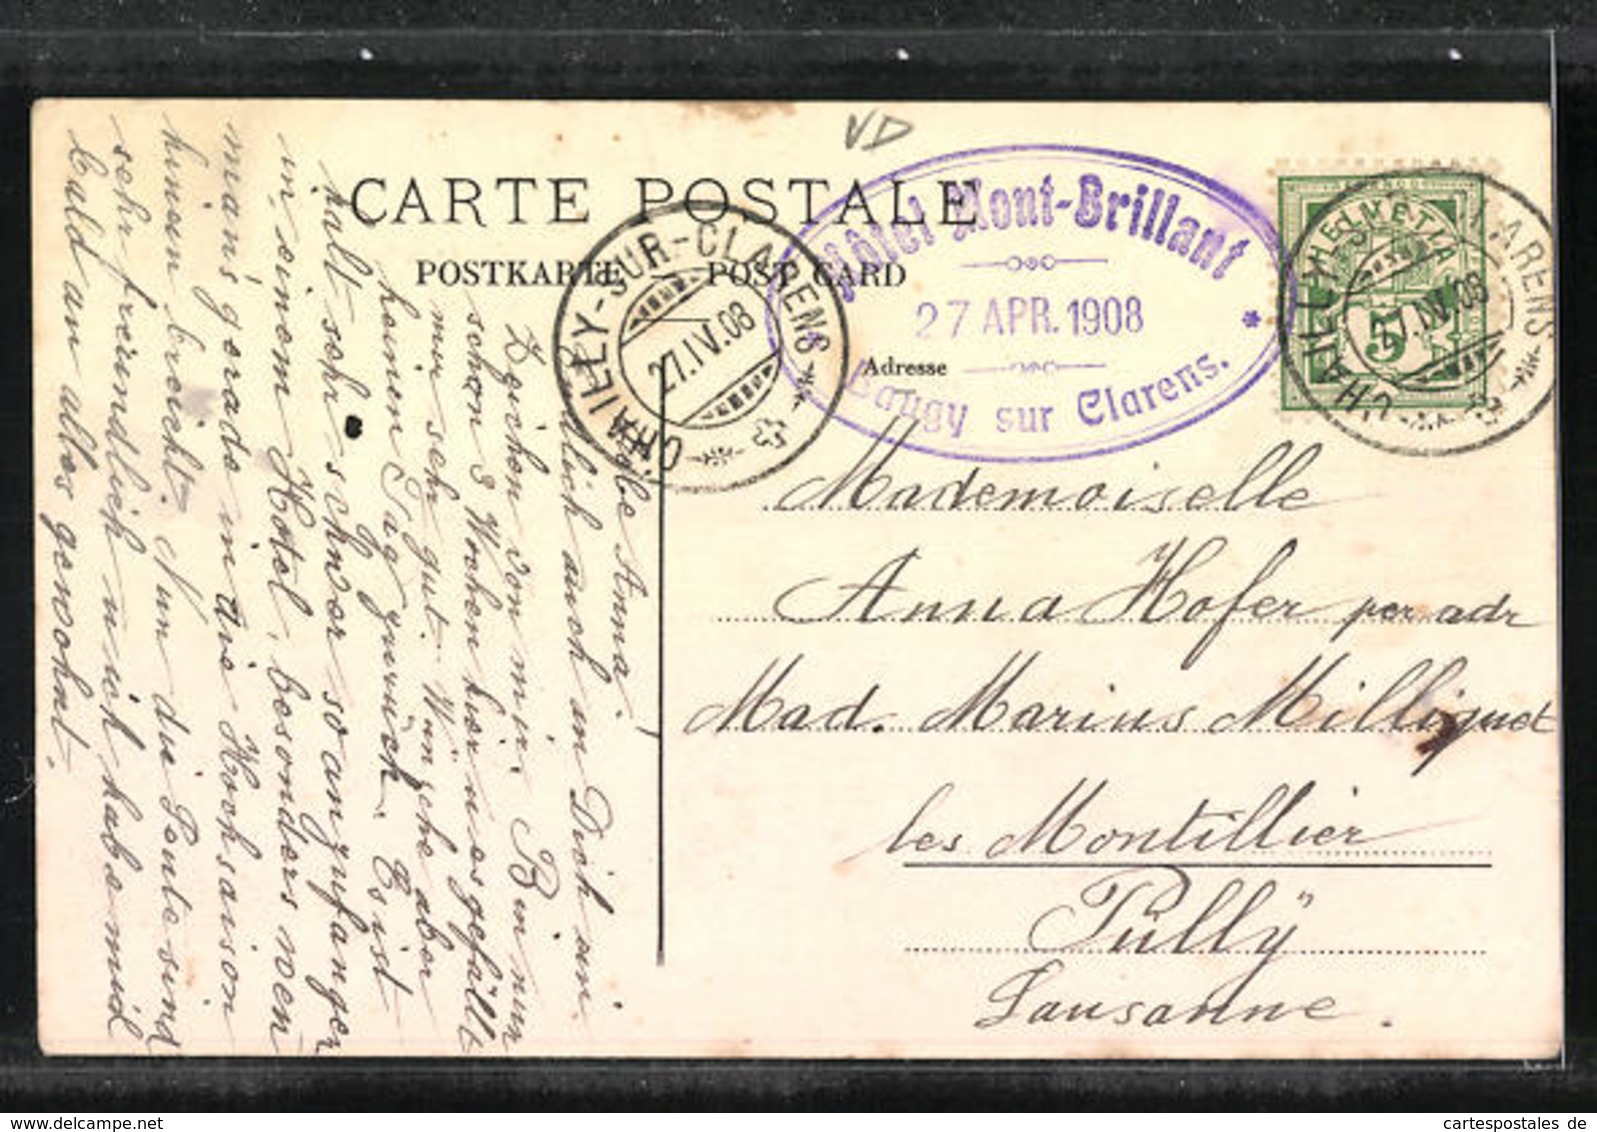 VD
CARTE POSTALE
POSTKARTE — POST CARD
Adresse
CHAILLY-SUR-CLARENS
27.IV.08
Hôtel Mont-Brillant
27 APR. 1908
Baugy sur Clarens.
HELVETIA
5
CHAILLY-S-CLARENS
27.IV.08
Mademoiselle
Anna Hofer per adr
Mad. Marius Milliquet
les Montillier
Pully
Lausanne.
Liebe Anna,
Endlich auch an Dich ein
Zeichen von mir. Bin nun
schon 3 Wochen hier u es gefällt
mir sehr gut. Wünsche aber
keinen Tag zurück. Es ist
halt sehr schwer so anzufangen
in einem Hotel, besonders wen
man's gerade in die Hochsaison
hinein breicht. Nun die Leute sind
sehr freundlich u ich habe mich
bald an alles gewohnt.
cartespostales de
www.delcampe.net